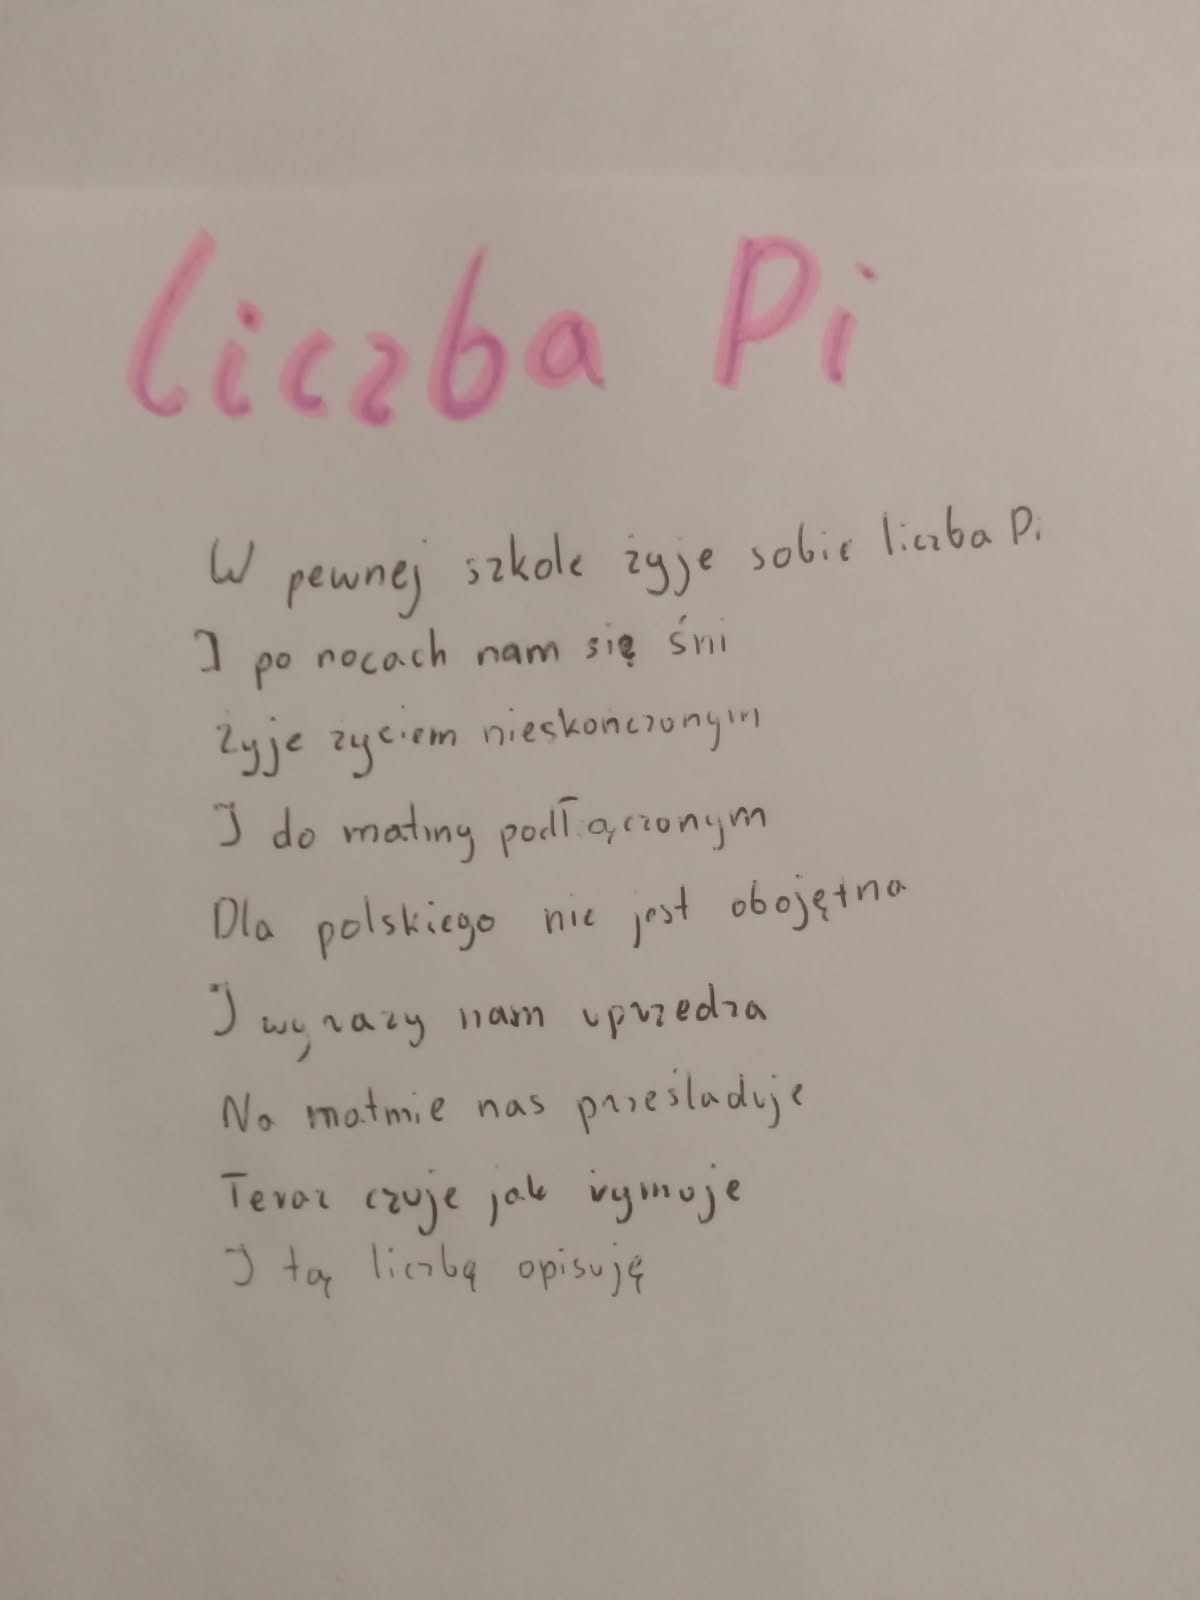 liczba Pi
W pewnej szkole żyje sobie liczba Pi
I po nocach nam się śni
Żyje życiem nieskończonym
I do matmy podłączonym
Dla polskiego nie jest obojętna
I wyrazy nam uprzedza
Na matmie nas prześladuje
Teraz czuje jak rymuje
I tą liczbę opisuję